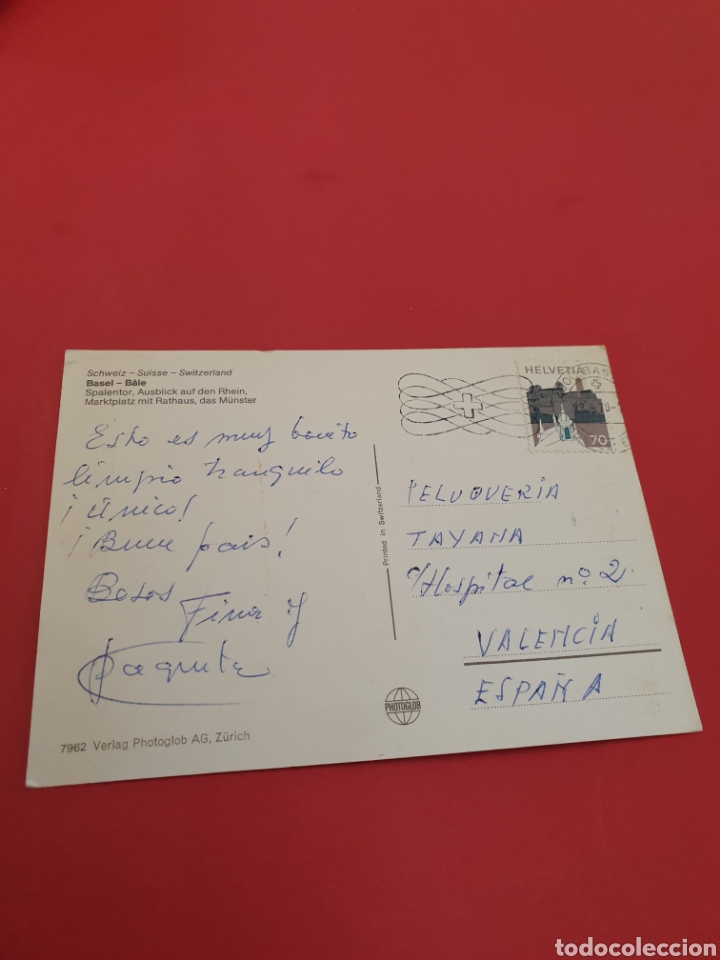 Schweiz – Suisse – Switzerland
Basel – Bâle
Spalentor, Ausblick auf den Rhein,
Marktplatz mit Rathaus, das Münster
Esto es muy bonito
limpio tranquilo
¡único!
¡Buen pais!
Besos
Fina y
Paquita
7962 Verlag Photoglob AG, Zürich
Printed in Switzerland
PHOTOGLOB
HELVETIA
70
PELUQUERIA
TAYANA
c/Hospital nº 2
VALENCIA
ESPAÑA
todocoleccion